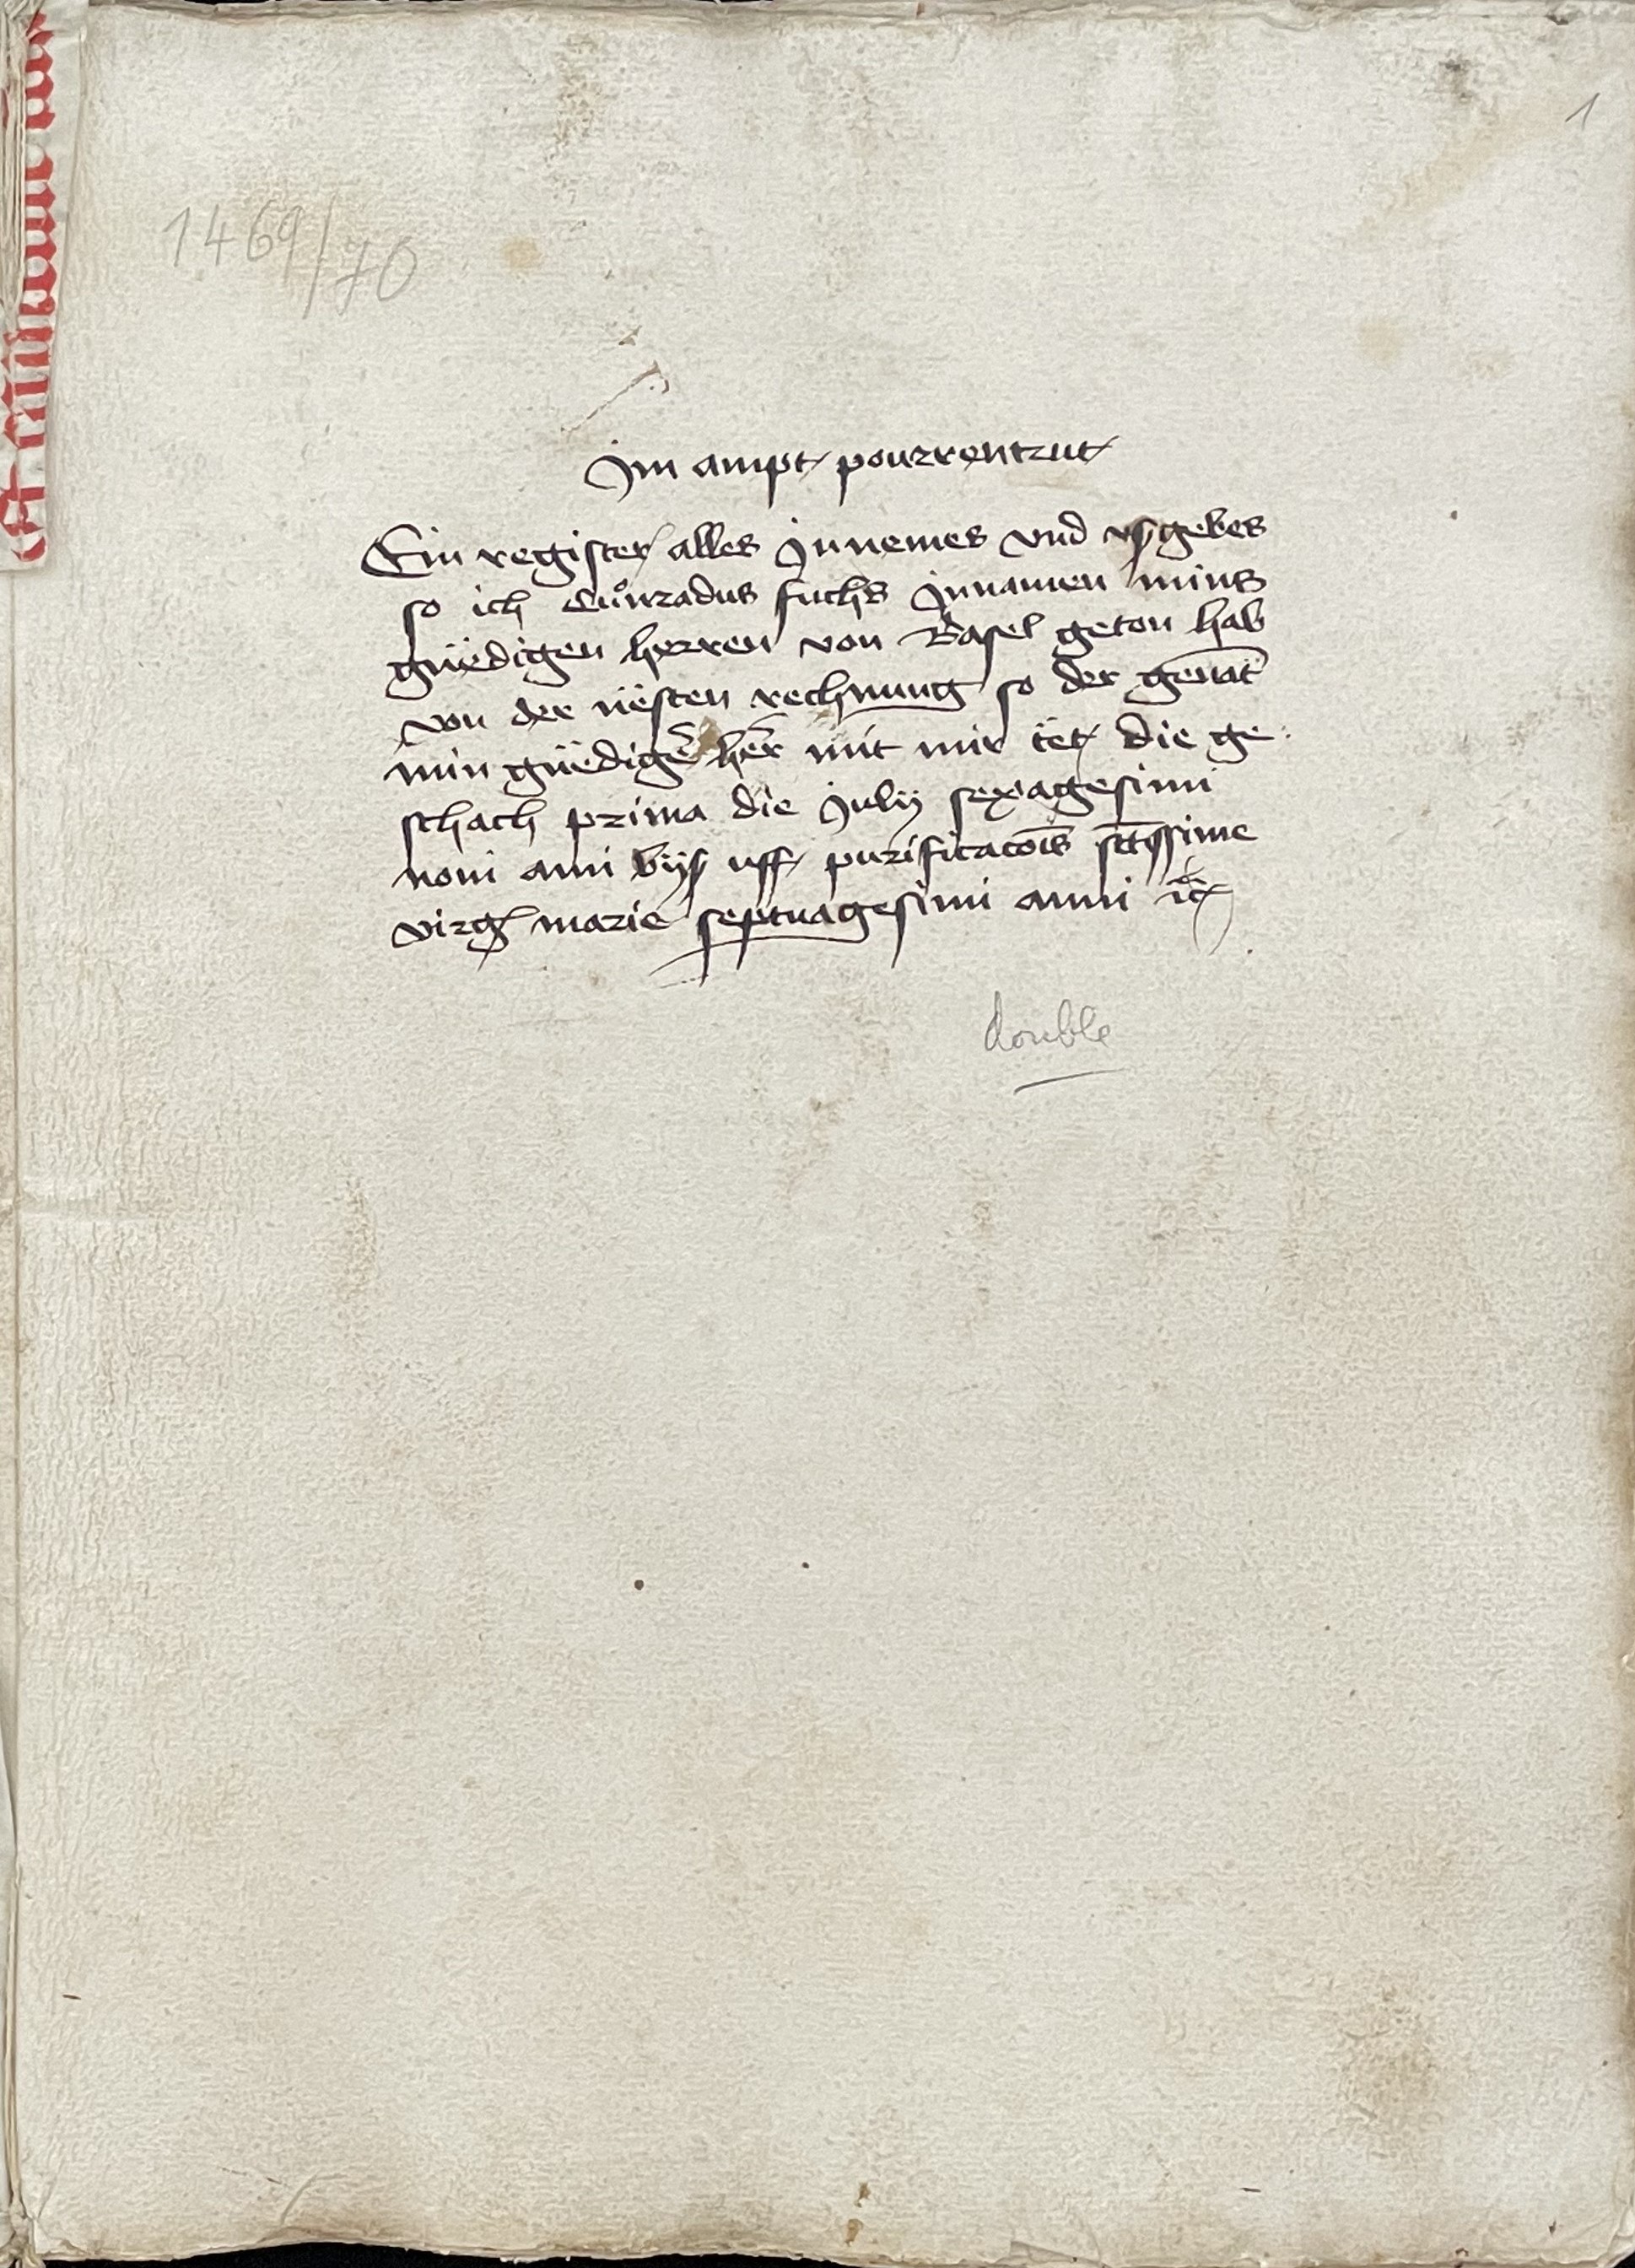 1
1469/70
Jm ampt pourrentrut
Ein register alles Jnnemes vnd vsgebes
so ich Cůnradus fuchs Jnnamen mins
gnëdigen herren von Basel geton hab
von der nësten rechnung so der genãt
min gnëdigẽ her̃ mit mir tët die ge
schach prima die Julij sexagesimi
noni anni bijs uff purificacõis sctissime
virg marie septuagesimi anni ꝛc
double